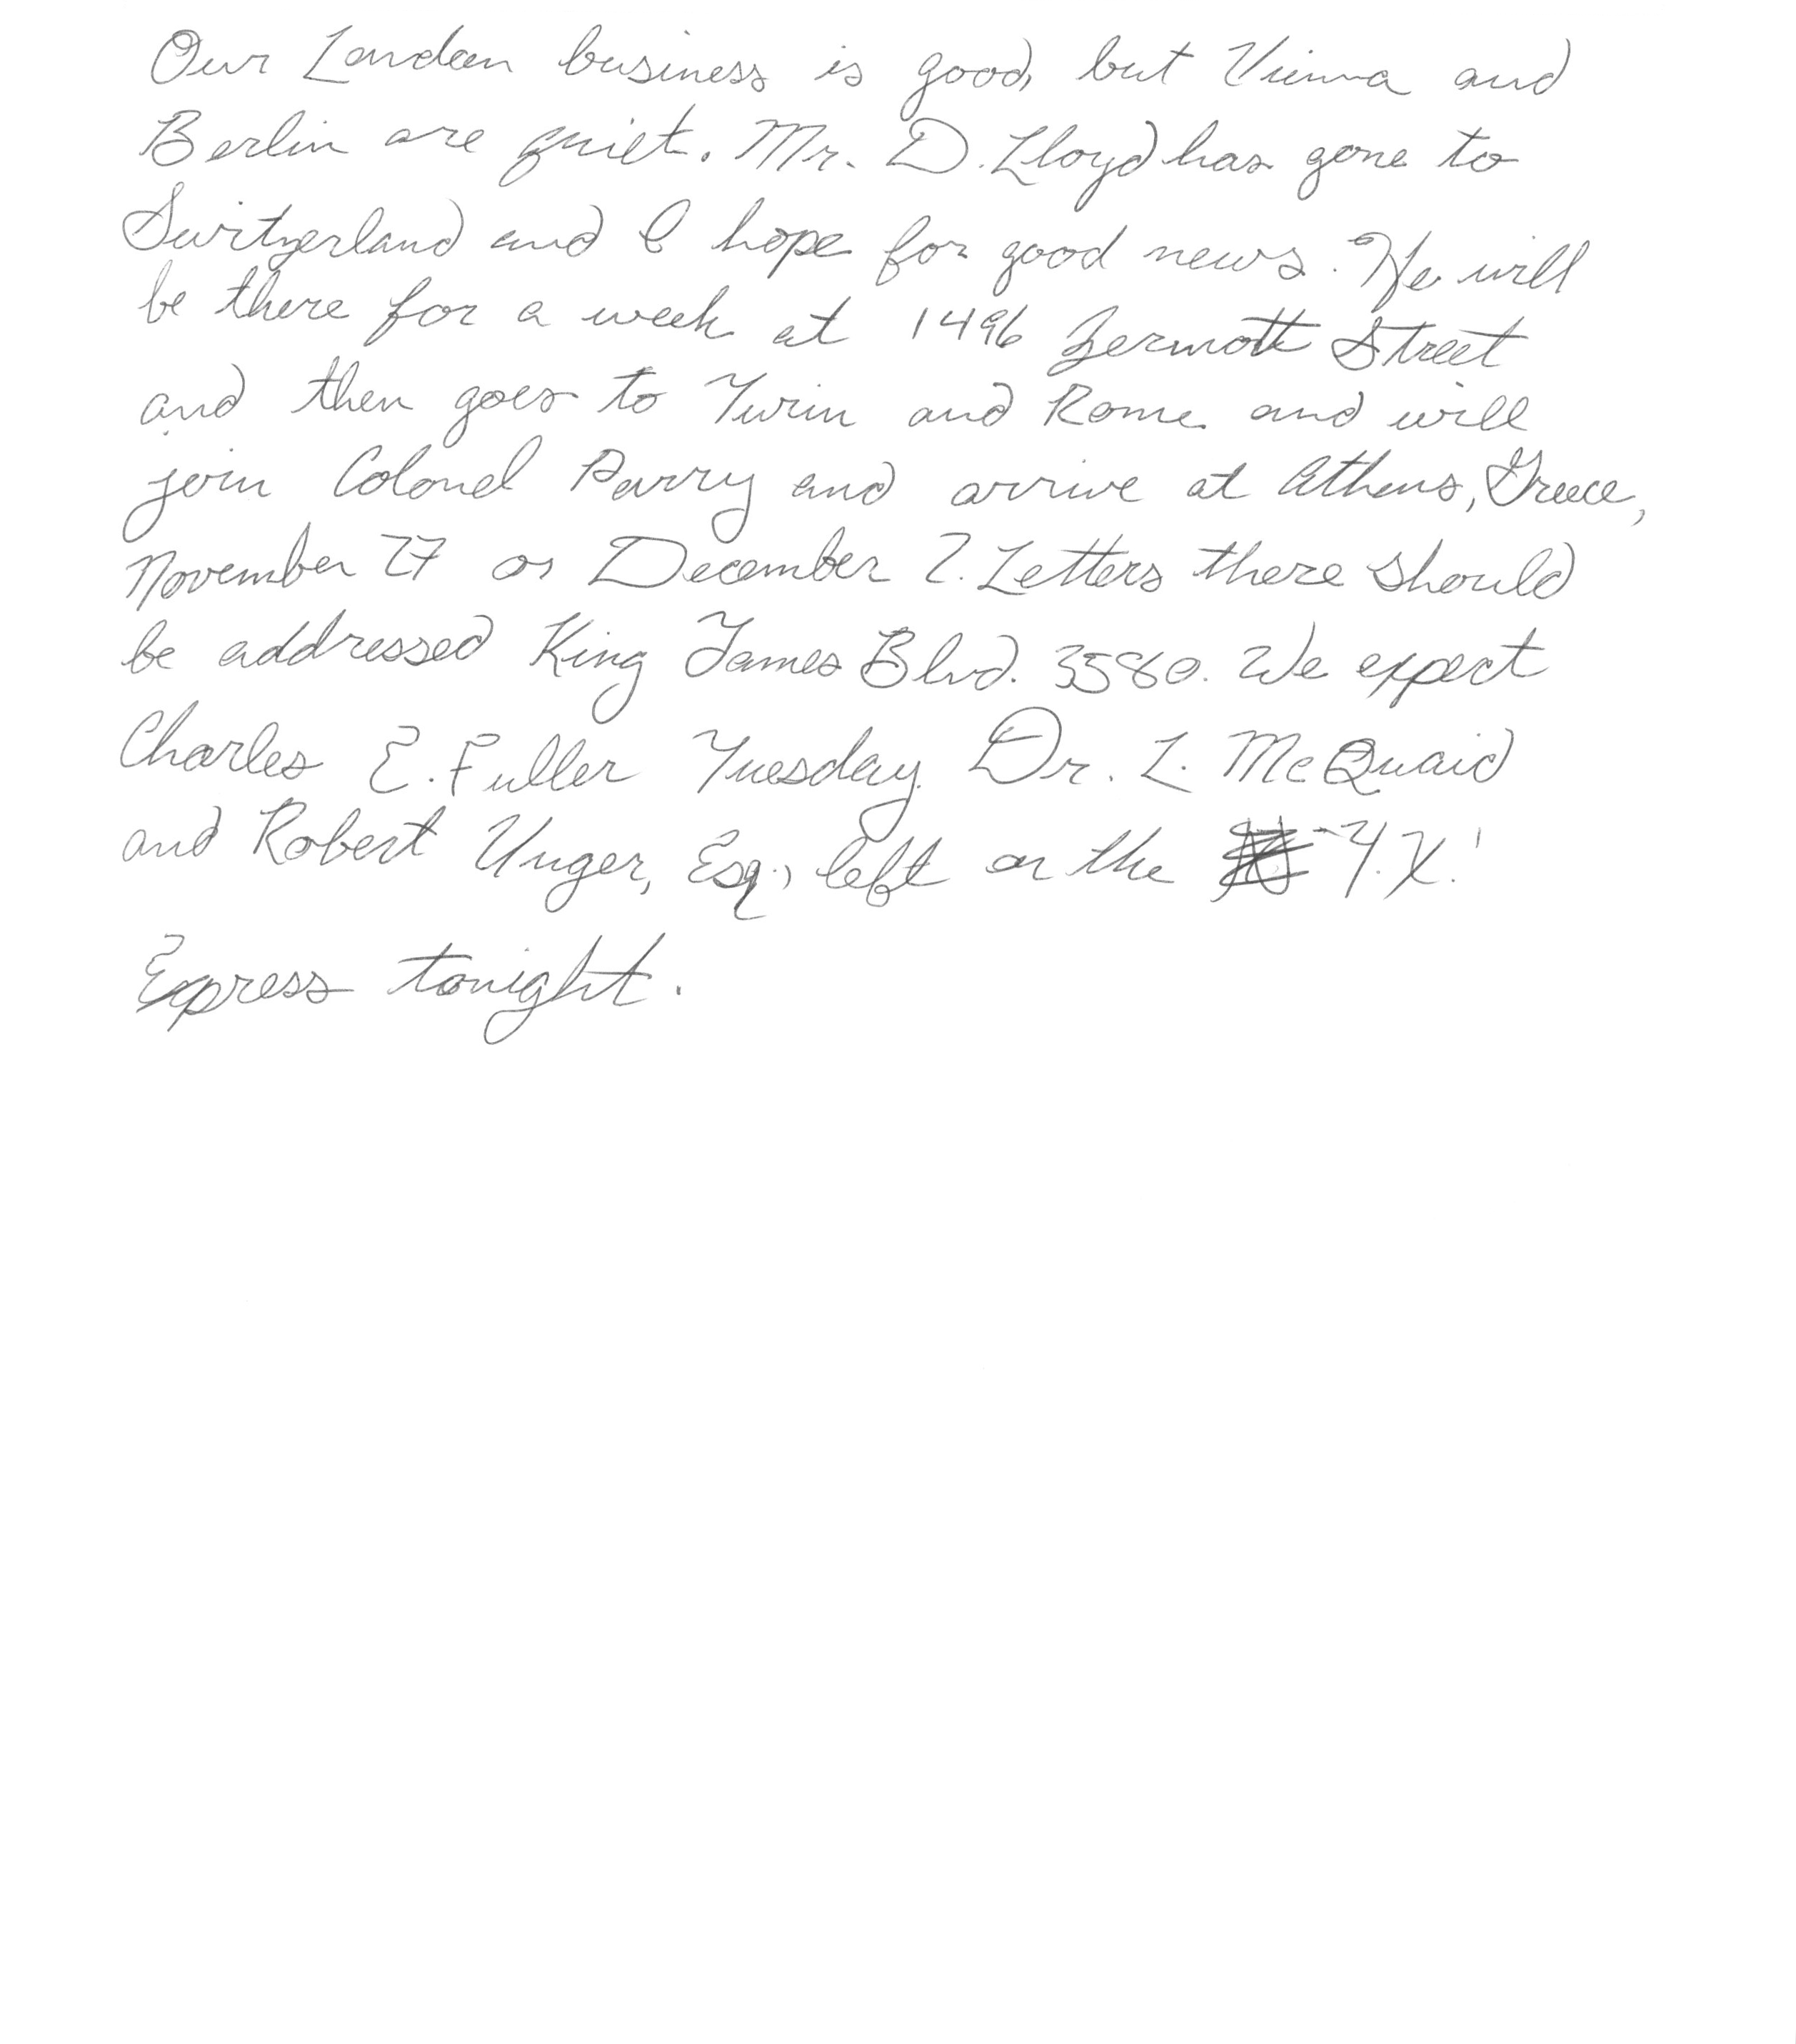 Our London business is good, but Vienna and
Berlin are quiet. Mr. D. Lloyd has gone to
Switzerland and I hope for good news. He will
be there for a week at 1496 Zermott Street
and then goes to Turin and Rome and will
join Colonel Parry and arrive at Athens, Greece,
November 27 or December 2. Letters there should
be addressed King James Blvd. 3580. We expect
Charles E. Fuller Tuesday. Dr. L. McQuaid
and Robert Unger, Esq., left on the "Y.X."
Express tonight.